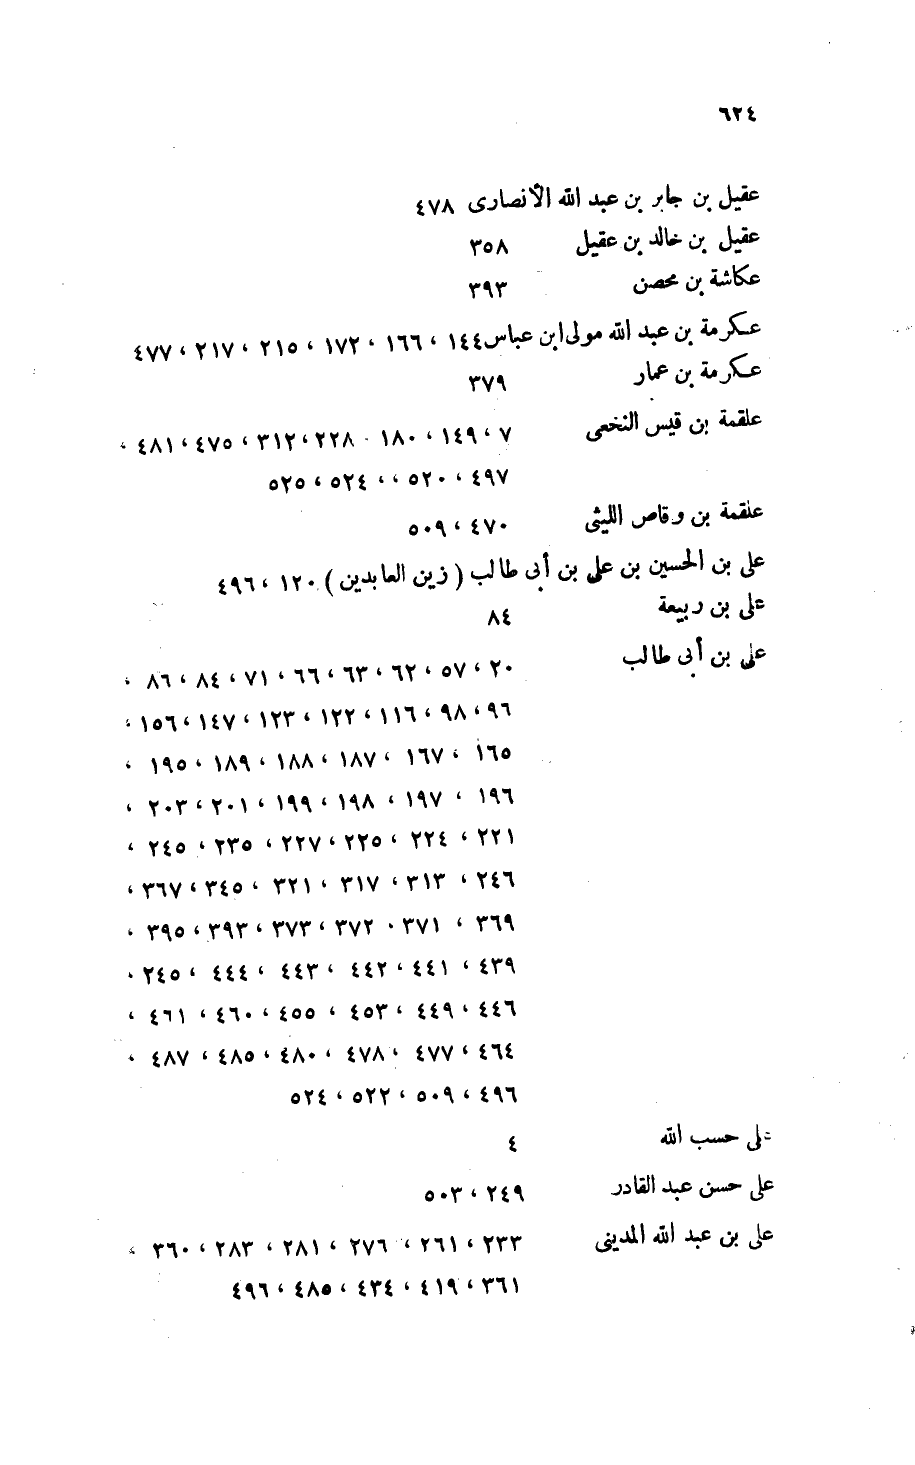 ٦٢٤
عقيل بن جابر بن عبد الله الأنصارى ٤٧٨
عقيل بن خالد بن عقيل ٣٥٨
عكاشة بن محصن ٣٩٣
عكرمة بن عبد الله مولى ابن عباس ١٤٤ ، ١٦٦ ، ١٧٢ ، ٢١٥ ، ٢١٧ ، ٤٧٧
عكرمة بن عمار ٣٧٩
علقمة بن قيس النخعى ٧ ، ١٤٩ ، ١٨٠ ٢٢٨ ، ٣١٢ ، ٤٧٥ ، ٤٨١ ،
٤٩٧ ، ٥٢٠ ، ، ٥٢٤ ، ٥٢٥
علقمة بن وقاص الليثى ٤٧٠ ، ٥٠٩
على بن الحسين بن على بن أبى طالب ( زين العابدين ) ١٢٠ ، ٤٩٦
على بن ربيعة ٨٤
على بن أبى طالب ٢٠ ، ٥٧ ، ٦٢ ، ٦٣ ، ٦٦ ، ٧١ ، ٨٤ ، ٨٦ ،
٩٦ ، ٩٨ ، ١١٦ ، ١٢٢ ، ١٢٣ ، ١٤٧ ، ١٥٦ ،
١٦٥ ، ١٦٧ ، ١٨٧ ، ١٨٨ ، ١٨٩ ، ١٩٥ ،
١٩٦ ، ١٩٧ ، ١٩٨ ، ١٩٩ ، ٢٠١ ، ٢٠٣ ،
٢٢١ ، ٢٢٤ ، ٢٢٥ ، ٢٢٧ ، ٢٣٥ ، ٢٤٥ ،
٢٤٦ ، ٣١٣ ، ٣١٧ ، ٣٢١ ، ٣٤٥ ، ٣٦٧ ،
٣٦٩ ، ٣٧١ ، ٣٧٢ ، ٣٧٣ ، ٣٩٣ ، ٣٩٥ ،
٤٣٩ ، ٤٤١ ، ٤٤٢ ، ٤٤٣ ، ٤٤٤ ، ٢٤٥ ،
٤٤٦ ، ٤٤٩ ، ٤٥٣ ، ٤٥٥ ، ٤٦٠ ، ٤٦١ ،
٤٦٤ ، ٤٧٧ ، ٤٧٨ ، ٤٨٠ ، ٤٨٥ ، ٤٨٧ ،
٤٩٦ ، ٥٠٩ ، ٥٢٢ ، ٥٢٤
على حسب الله ٤
على حسن عبد القادر ٢٤٩ ، ٥٠٣
على بن عبد الله المدينى ٢٣٣ ، ٢٦١ ، ٢٧٦ ، ٢٨١ ، ٢٨٣ ، ٣٦٠ ،
٣٦١ ، ٤١٩ ، ٤٣٤ ، ٤٨٥ ، ٤٩٦